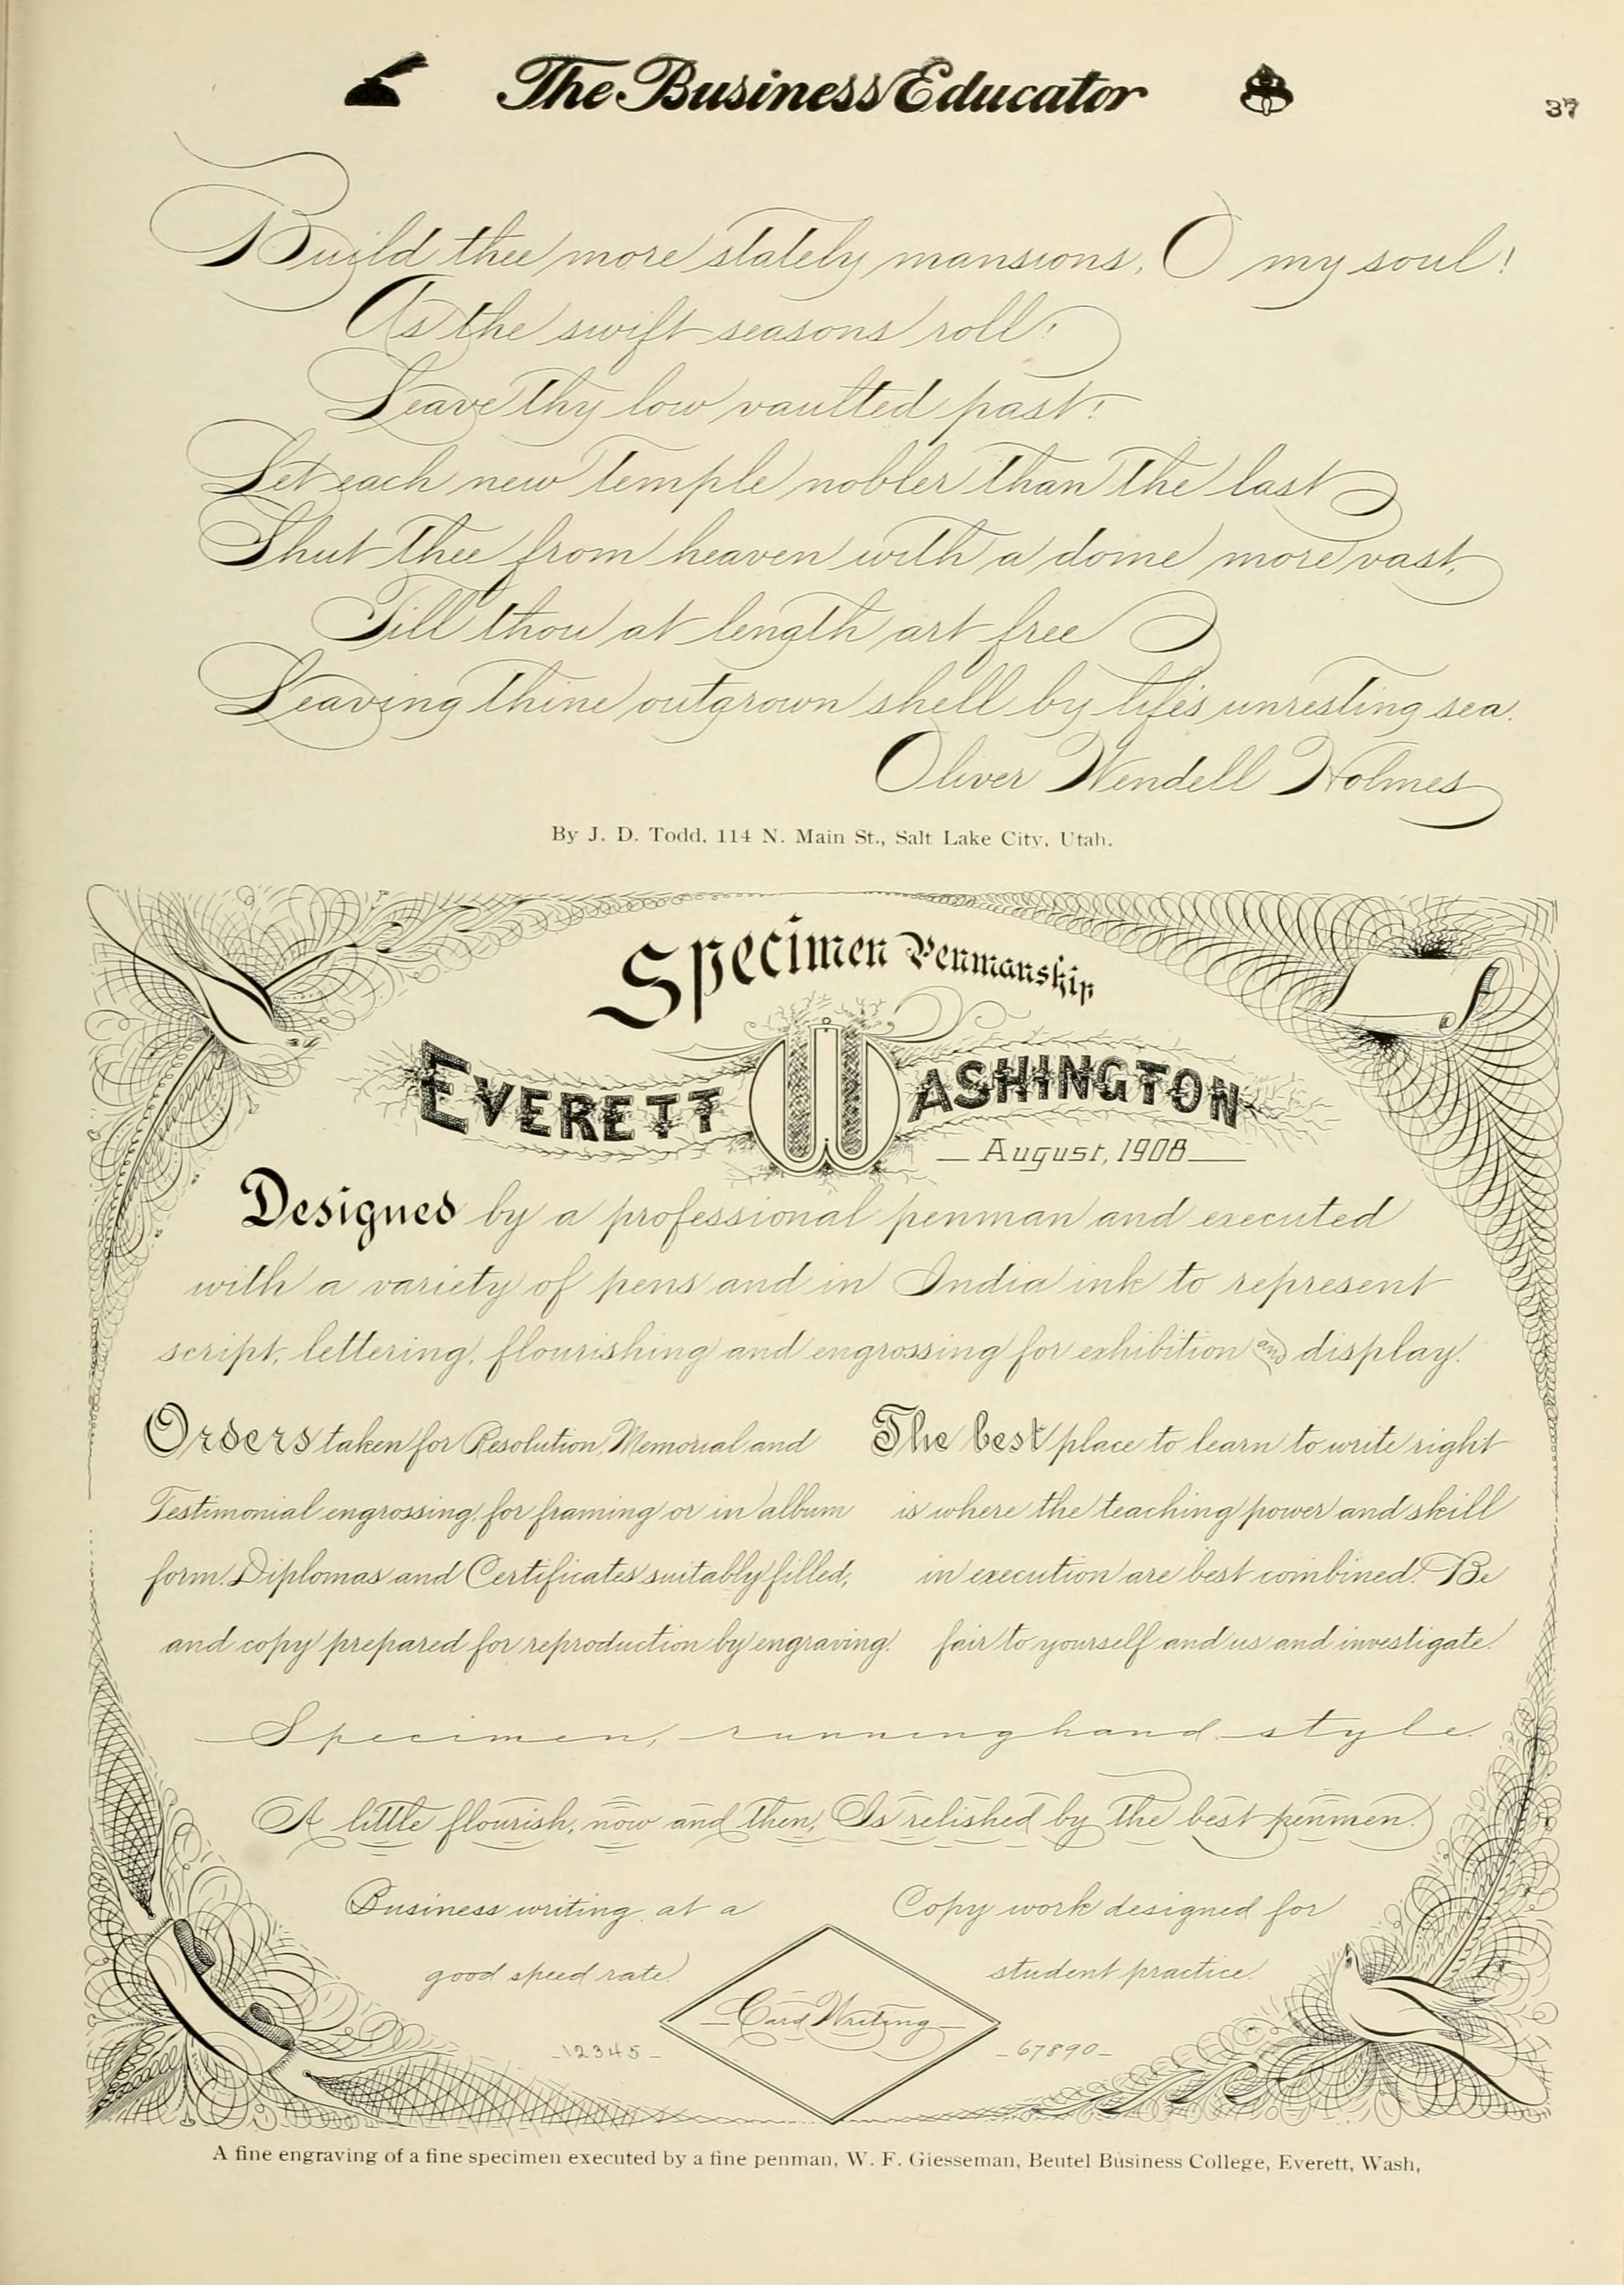 The Business Educator
37
Build thee more stately mansions, O my soul!
As the swift seasons roll!
Leave thy low vaulted past!
Let each new temple nobler than the last
Shut thee from heaven with a dome more vast,
Till thou at length art free
Leaving thine outgrown shell by life's unresting sea.
Oliver Wendell Holmes
By J. D. Todd, 114 N. Main St., Salt Lake City, Utah.
Specimen Penmanship
EVERETT WASHINGTON
August, 1908
Designed by a professional penman and executed
with a variety of pens and in India ink to represent
script, lettering, flourishing and engrossing for exhibition and display.
Orders taken for Resolution, Memorial and
Testimonial engrossing, for framing or in album
form. Diplomas and Certificates suitably filled,
and copy prepared for reproduction by engraving.
The best place to learn to write right
is where the teaching power and skill
in execution are best combined. Be
fair to yourself and us and investigate.
Specimen, running hand style.
A little flourish, now and then, Is relished by the best penmen.
Business writing at a
good speed rate.
Copy work designed for
student practice.
Card Writing
12345
67890
A fine engraving of a fine specimen executed by a fine penman, W. F. Giesseman, Beutel Business College, Everett, Wash,